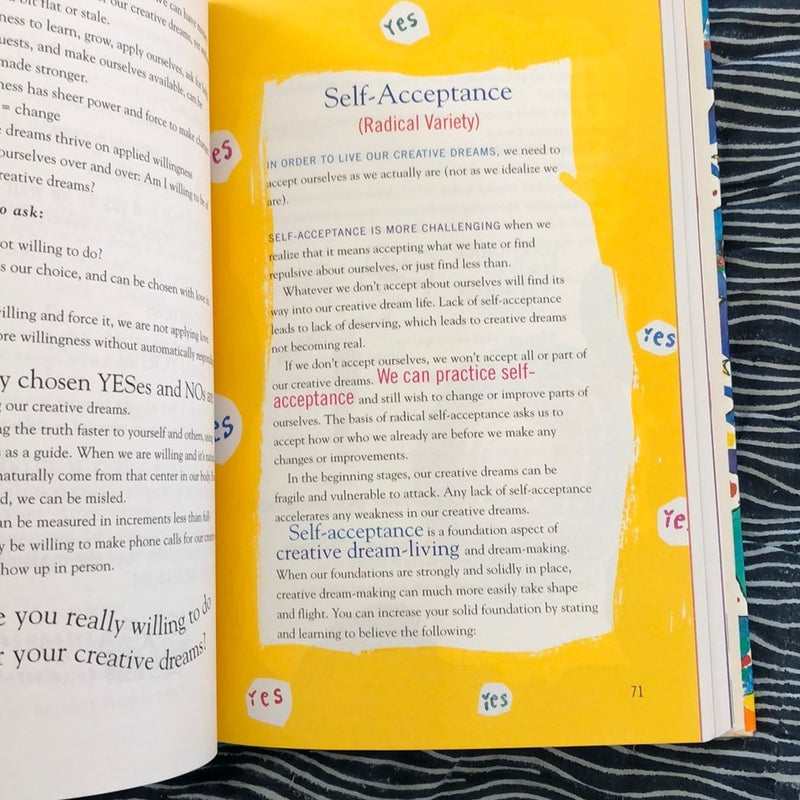 bit flat or stale.
our creative dreams, yet
ness to learn, grow, apply ourselves, ask for
uests, and make ourselves available, can be
made stronger.
ness has sheer power and force to make
= change
dreams thrive on applied willingness
ourselves over and over: Am I willing to
reative dreams?
o ask:
ot willing to do?
s our choice, and can be chosen with love
illing and force it, we are not applying love
ore willingness without automatically
y chosen YESes and NOs
our creative dreams.
ng the truth faster to yourself and others,
as a guide. When we are willing and
naturally come from that center in our body
d, we can be misled.
an be measured in increments less than
y be willing to make phone calls for our
how up in person.
e you really willing to do
r your creative dreams?
Yes
es
Self-Acceptance
(Radical Variety)
IN ORDER TO LIVE OUR CREATIVE DREAMS, we need to
accept ourselves as we actually are (not as we idealize we
are).
SELF-ACCEPTANCE IS MORE CHALLENGING when we
realize that it means accepting what we hate or find
repulsive about ourselves, or just find less than.
Whatever we don't accept about ourselves will find its
way into our creative dream life. Lack of self-acceptance
leads to lack of deserving, which leads to creative dreams
not becoming real.
Yes
If we don't accept ourselves, we won't accept all or part of
our creative dreams. We can practice self-
acceptance and still wish to change or improve parts of
ourselves. The basis of radical self-acceptance asks us to
accept how or who we already are before we make any
changes or improvements.
es
In the beginning stages, our creative dreams can be
fragile and vulnerable to attack. Any lack of self-acceptance
accelerates any weakness in our creative dreams.
Ye
Self-acceptance is a foundation aspect of
creative dream-living and dream-making.
When our foundations are strongly and solidly in place,
creative dream-making can much more easily take shape
and flight. You can increase your solid foundation by stating
and learning to believe the following:
Yes
Yes
71